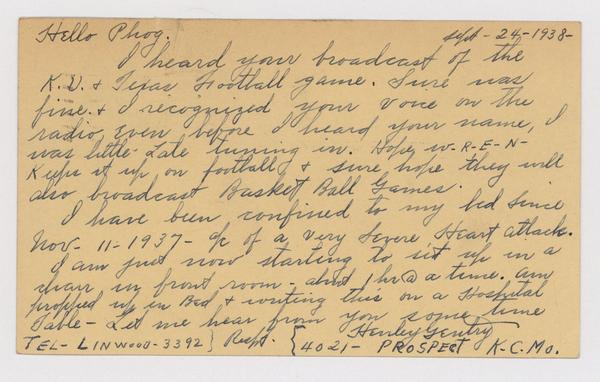 Hello Phog. Sept - 24 - 1938 -
I heard your broadcast of the
K.U. & Texas Football game. Sure was
fine. & I recognized your voice on the
radio, even before I heard your name, I
was little - Late tuning in. Hope W-R-E-N-
Keeps it up on football & sure hope they will
also broadcast Basket Ball Games.
I have been confined to my bed since
Nov - 11 - 1937 - a/c of a Very Severe Heart attack.
I am just now starting to sit up in a
chair in front room - about 1 hr @ a time. Am
propped up in Bed & writing this on a Hospital
Table - Let me hear from you some time
Respt. Henley Gentry
TEL - LINWOOD - 3392 } { 4021 - PROSPECT K.C. Mo.